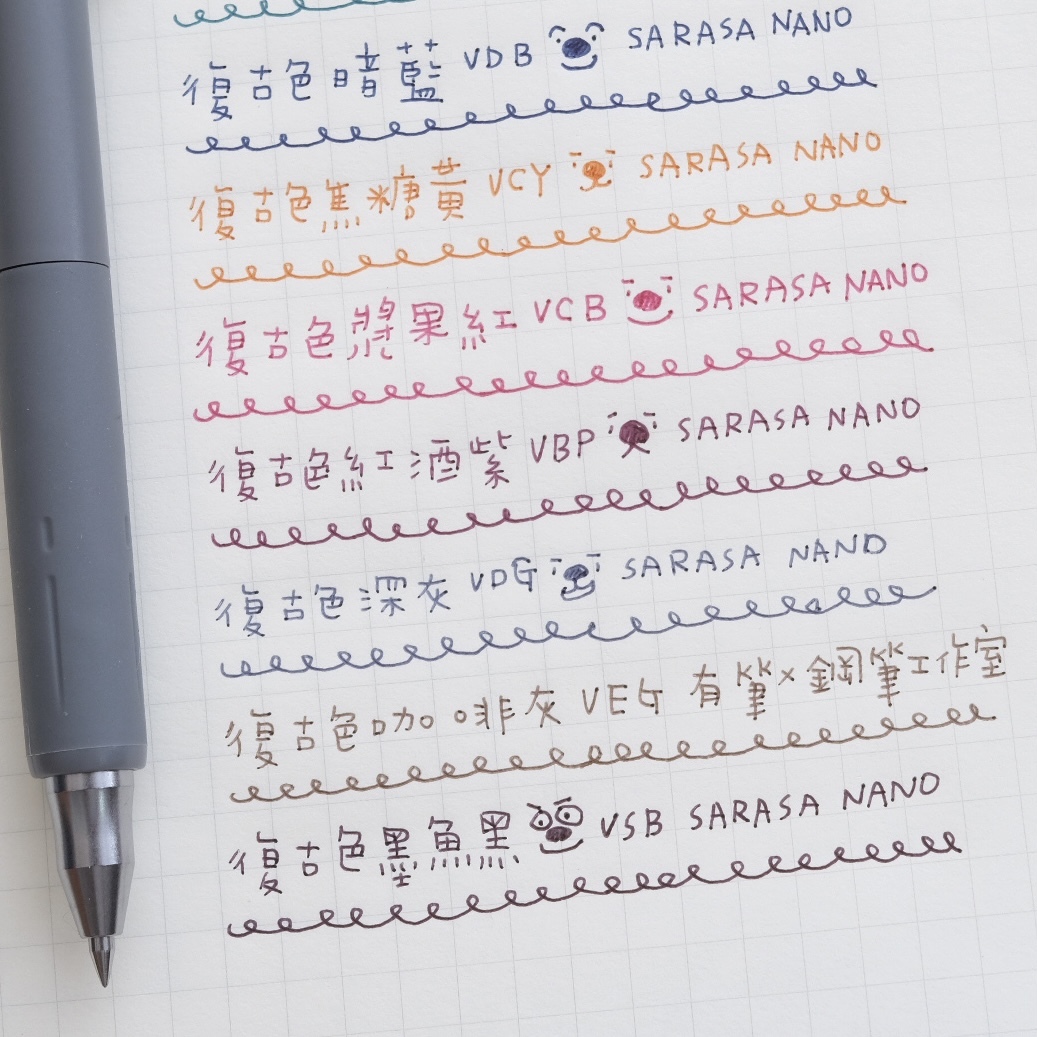 復古色暗藍 VDB SARASA NANO
復古色焦糖黃 VCY SARASA NANO
復古色漿果紅 VCB SARASA NANO
復古色紅酒紫 VBP SARASA NANO
復古色深灰 VDG SARASA NANO
復古色咖啡灰 VEG 有筆×鋼筆工作室
復古色墨魚黑 VSB SARASA NANO